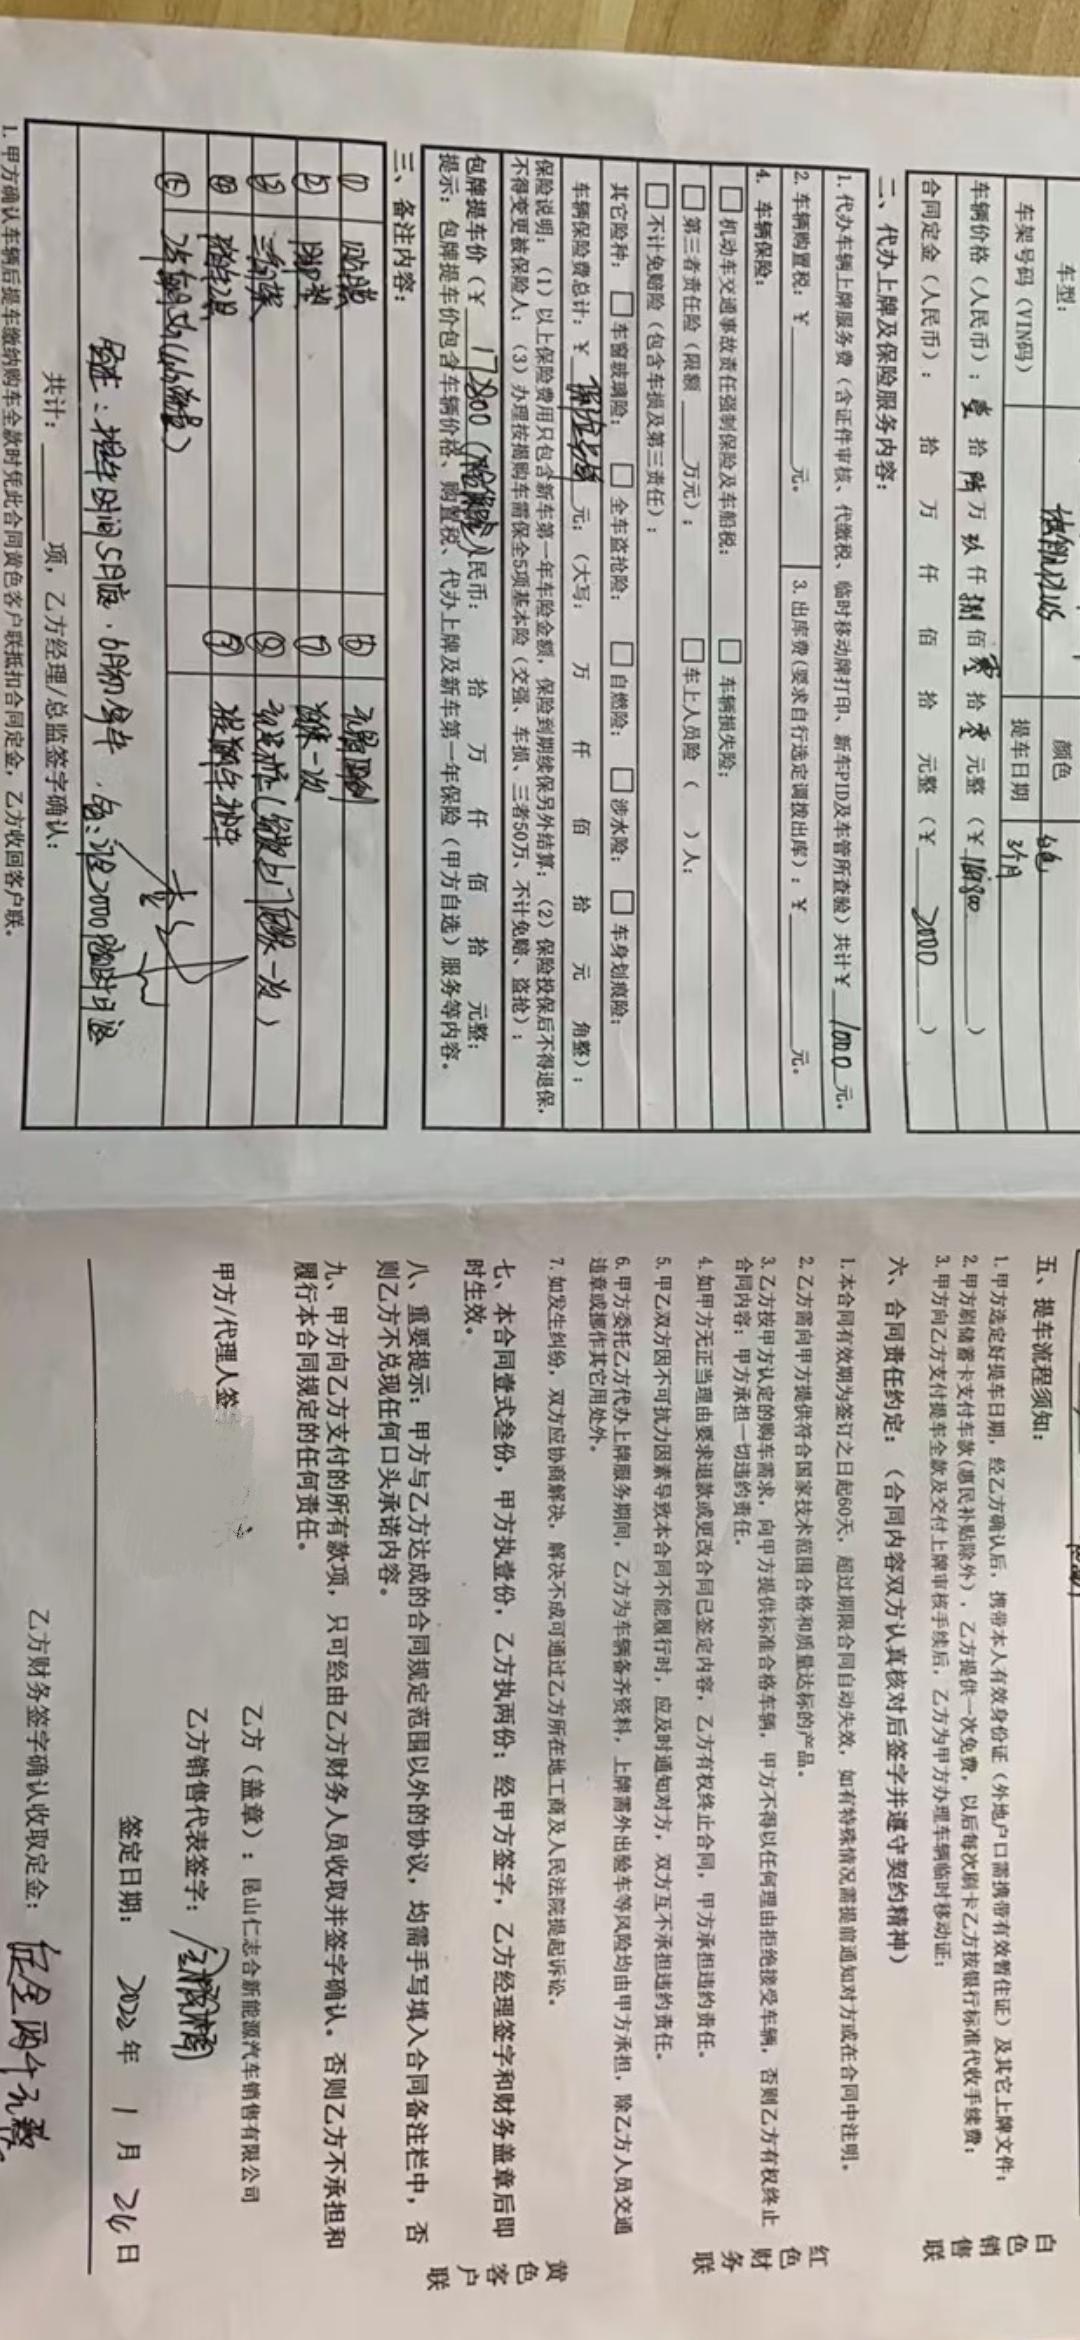 车型：
颜色
白色
车架号码（VIN码）
提车日期
3个月
车辆价格（人民币）：壹 拾 陆 万 玖 仟 捌 佰 零 拾 零 元整（￥ ）
合同定金（人民币）： 拾 万 仟 佰 拾 元整（￥ 2000 ）
二、代办上牌及保险服务内容：
1. 代办车辆上牌服务费（含证件审核、代缴税、临时移动牌打印、新车PID及车管所查验）共计￥ 1000 元。
2. 车辆购置税：￥ 元。
3. 出库费（要求自行选定调拨出库）：￥ 元。
4. 车辆保险：
□机动车交通事故责任强制保险及车船税； □车辆损失险；
□第三者责任险（限额 万元）； □车上人员险（ ）人；
□不计免赔险（包含车损及第三责任）；
其它险种： □车窗玻璃险； □全车盗抢险； □自燃险； □涉水险； □车身划痕险；
车辆保险费总计：￥ 元；（大写： 万 仟 佰 拾 元 角整）；
保险说明：（1）以上保险费用只包含新车第一年车险金额，保险到期续保另外结算；（2）保险投保后不得退保，
不得变更被保险人；（3）办理按揭购车需保全5项基本险（交强、车损、三者50万、不计免赔、盗抢）；
包牌提车价（￥ 17800 民币： 拾 万 仟 佰 拾 元整；
提示：包牌提车价包含车辆价格、购置税、代办上牌及新车第一年保险（甲方自选）服务等内容。
三、备注内容：
① 贴膜 ⑥
② 脚垫 ⑦ 一次
③
④
⑤
备注：提车时间5月底，6月初提车
共计： 项，乙方经理/总监签字确认：
1. 甲方确认车辆后提车缴纳购车全款时凭此合同黄色客户联抵扣合同定金，乙方收回客户联。
五、提车流程须知：
1. 甲方选定好提车日期，经乙方确认后，携带本人有效身份证（外地户口需携带有效暂住证）及其它上牌文件；
2. 甲方刷储蓄卡支付车款（惠民补贴除外），乙方提供一次免费，以后每次刷卡乙方按银行标准代收手续费；
3. 甲方向乙方支付提车全款及交付上牌审核手续后，乙方为甲方办理车辆临时移动证；
六、合同责任约定：（合同内容双方认真核对后签字并遵守契约精神）
1. 本合同有效期为签订之日起60天，超过期限合同自动失效，如有特殊情况需提前通知对方或在合同中注明。
2. 乙方需向甲方提供符合国家技术范围合格和质量达标的产品。
3. 乙方按甲方认定的购车需求，向甲方提供标准合格车辆，甲方不得以任何理由拒绝接受车辆，否则乙方有权终止
合同内容；甲方承担一切违约责任。
4. 如甲方无正当理由要求退款或更改合同已签定内容，乙方有权终止合同，甲方承担违约责任。
5. 甲乙双方因不可抗力因素导致本合同不能履行时，应及时通知对方，双方互不承担违约责任。
6. 甲方委托乙方代办上牌服务期间，乙方为车辆备齐资料，上牌需外出验车等风险均由甲方承担，除乙方人员交通
违章或挪作其它用处外。
7. 如发生纠纷，双方应协商解决，解决不成可通过乙方所在地工商及人民法院提起诉讼。
七、本合同壹式叁份，甲方执壹份，乙方执两份；经甲方签字，乙方经理签字和财务盖章后即
时生效。
八、重要提示：甲方与乙方达成的合同规定范围以外的协议，均需手写填入合同备注栏中，否
则乙方不兑现任何口头承诺内容。
九、甲方向乙方支付的所有款项，只可经由乙方财务人员收取并签字确认。否则乙方不承担和
履行本合同规定的任何责任。
甲方/代理人签
乙方（盖章）：昆山仁志合新能源汽车销售有限公司
乙方销售代表签字：
签定日期： 2022 年 1 月 26 日
乙方财务签字确认收取定金： 定金两千元整
白色销售联
红色财务联
黄色客户联